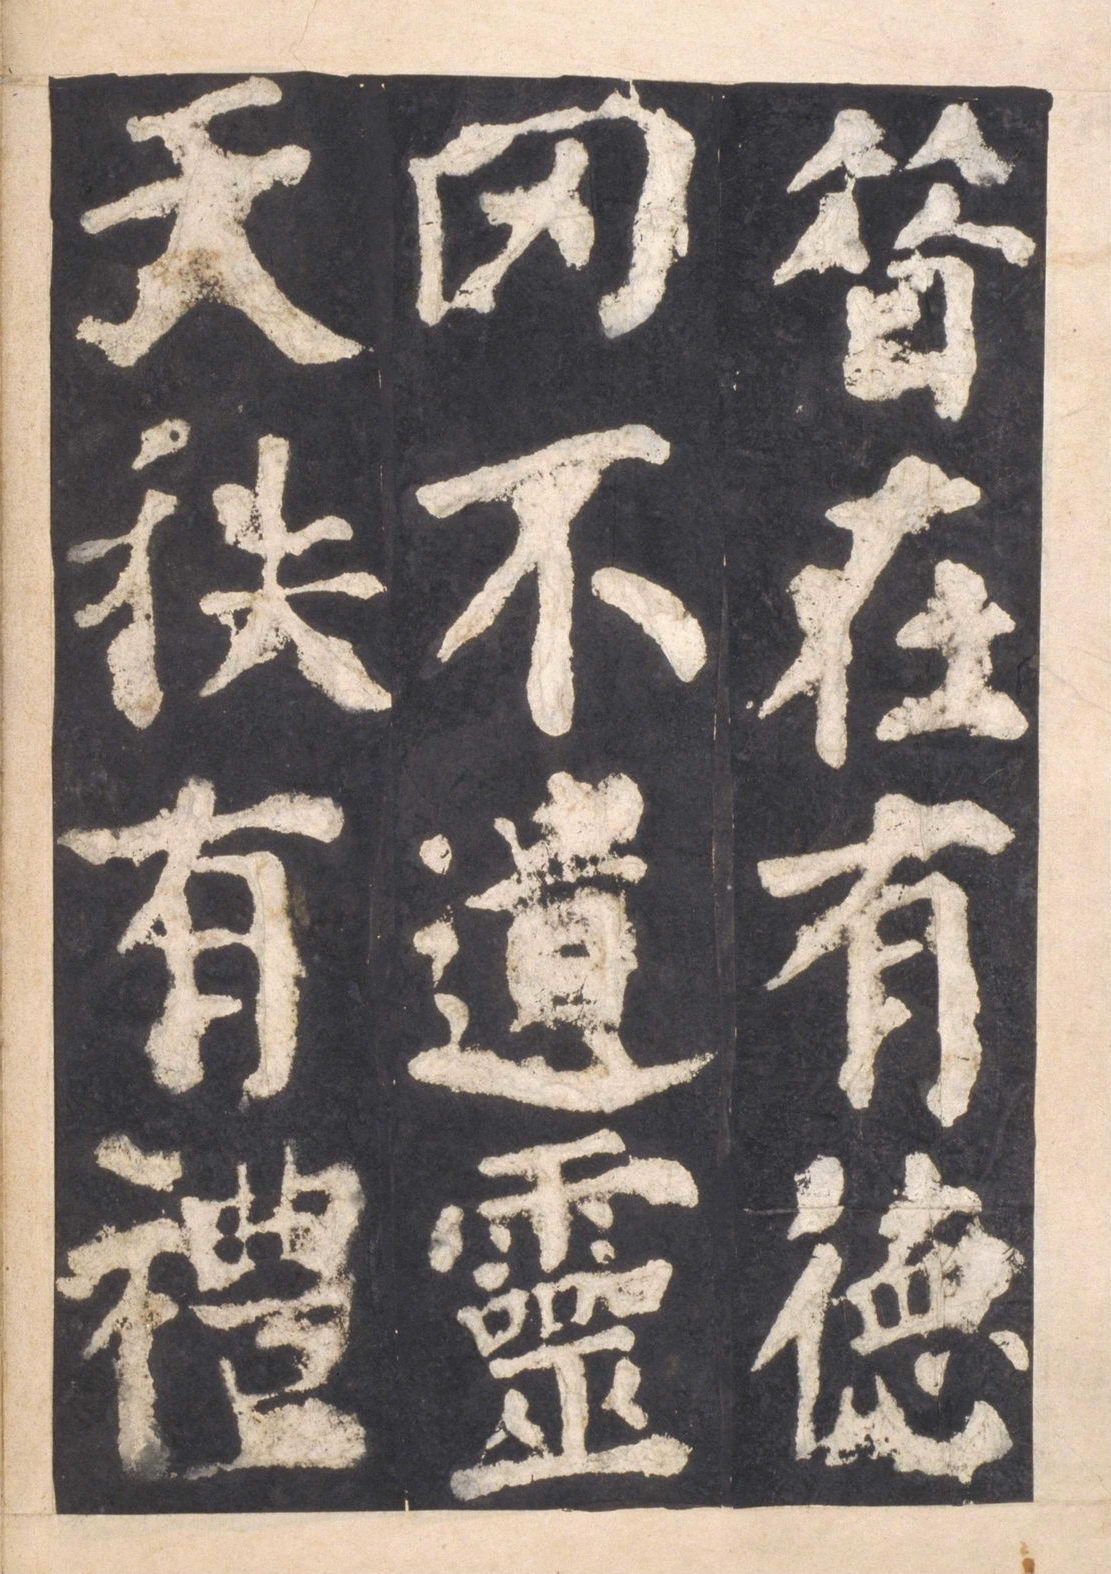 昔在有德
罔不遺靈
天秩有禮